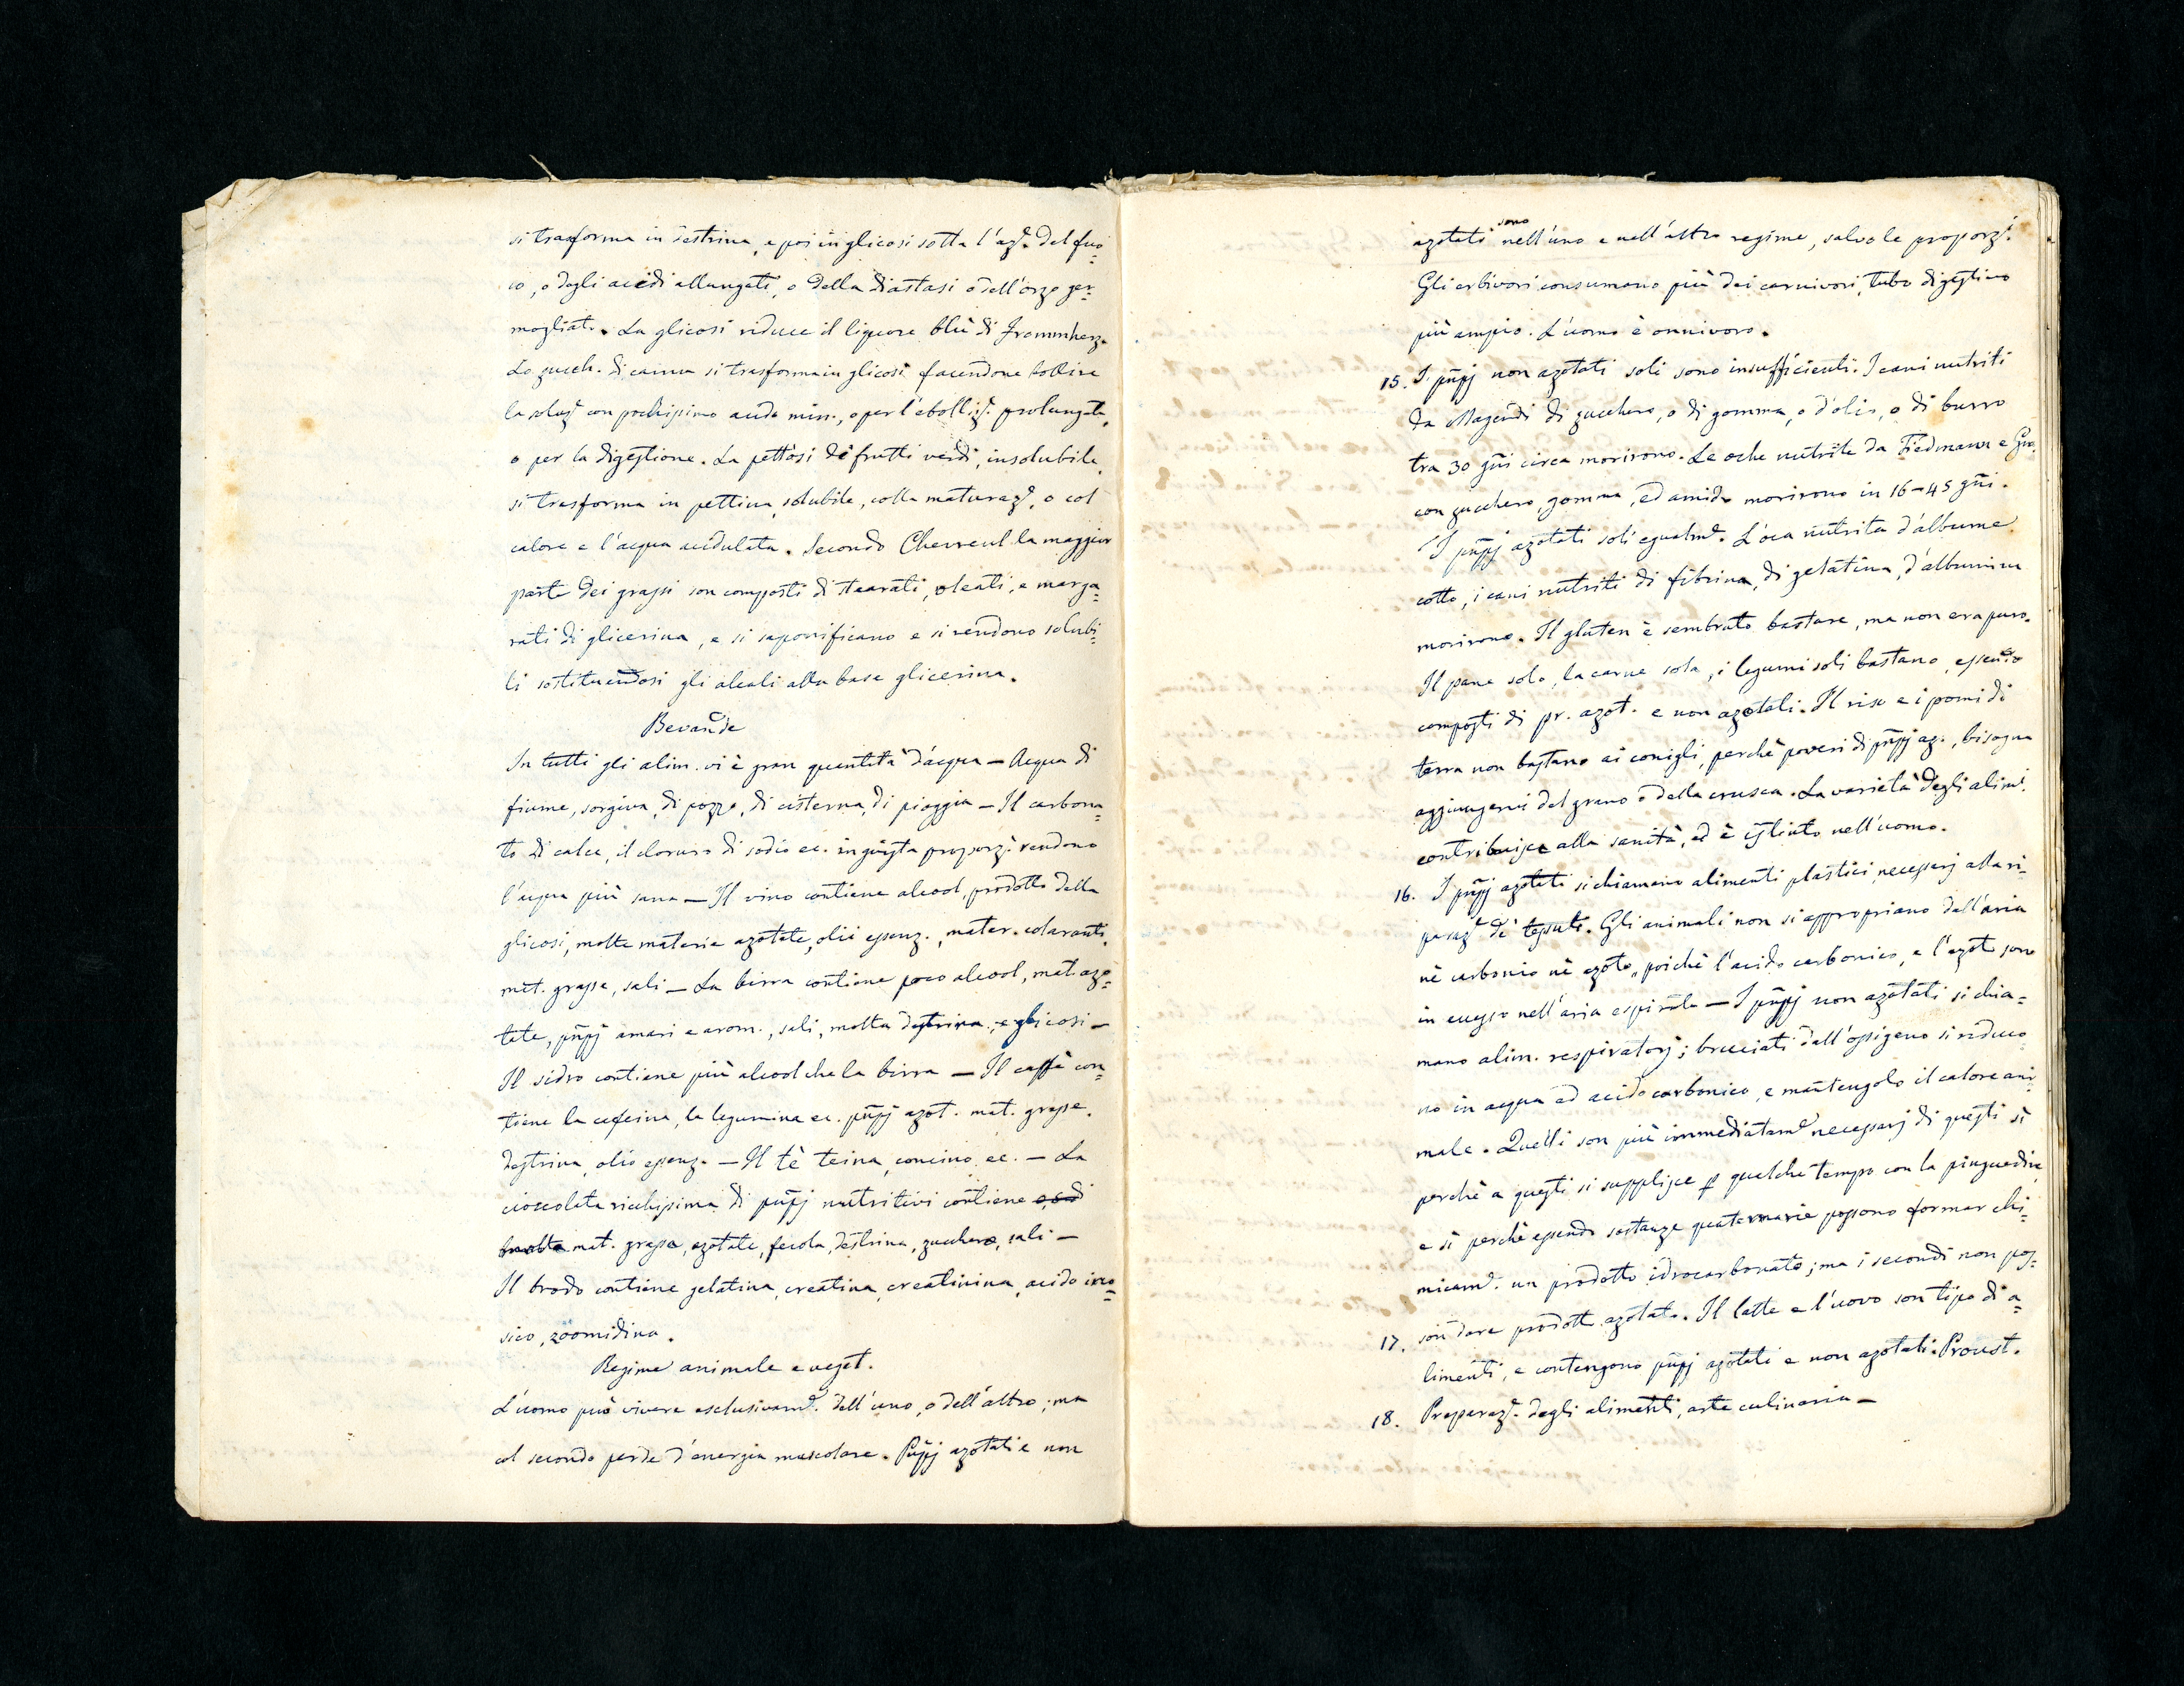 si trasforma in destrina, e poi in glicosi sotto l'az.e del fuo=
co, o degli acidi allungati, o della diastasi o dell'orzo ger=
mogliato. La glicosi riduce il liquore blù di Frommherz.
Lo zucch. di canna si trasforma in glicosi facendone bollire
la soluz.e con pochissimo acido min., o per l'ebolliz.e prolungata,
o per la digestione. La pettosi de' frutti verdi, insolubile,
si trasforma in pettina, solubile, colla maturaz.e, o col
calore e l'acqua acidulata. Secondo Chevreul la maggior
parte dei grassi son composti di stearati, oleati, e marga=
rati di glicerina, e si saponificano e si rendono solubi=
li sostituendosi gli alcali alla base glicerina.
Bevande
In tutti gli alim. vi è gran quantità d'acqua — Acqua di
fiume, sorgiva, di pozzo, di cisterna, di pioggia — Il carbona=
to di calce, il cloruro di sodio ec. in giusta proporz.e rendono
l'acqua più sana — Il vino contiene alcool, prodotto della
glicosi, molte materie azotate, olii essenz., mater. coloranti,
mat. grasse, sali — La birra contiene poco alcool, mat. azo=
tate, pñpj amari e arom., sali, molta destrina, e glicosi —
Il sidro contiene più alcool che la birra — Il caffè con=
tiene la caffeina, la legumina ec. pñpj azot. mat. grasse.
destrina, olio essenz. — Il tè teina, concino, ec. — La
cioccolata ricchissima di pñpj nutritivi contiene
mat. grasse, azotate, fecola, destrina, zucchero, sali —
Il brodo contiene gelatina, creatina, creatinina, acido ino=
sico, zoomidina.
Regime animale e veget.
L'uomo può vivere esclusivam.e dell'uno, o dell'altro; ma
col secondo perde d'energia muscolare. Pñpj azotati e non
azotati sono nell'uno e nell'altro regime, salvo le proporz.i
Gli erbivori consumano più dei carnivori, tubo digestivo
più ampio. L'uomo è onnivoro.
15. I pñpj non azotati soli sono insufficienti. I cani nutriti
da Magendi di zucchero, o di gomma, o d'olio, o di burro
tra 30 gñi circa morirono. Le oche nutrite da Tiedmann e
con zucchero, gomma, ed amido morirono in 16-45 gñi.
I pñpj azotati soli egualm.e L'oca nutrita d'albume
cotto, i cani nutriti di fibrina, di gelatina, d'albumina
morirono. Il gluten è sembrato bastare, ma non era puro.
Il pane solo, la carne sola, i legumi soli bastano, essendo
composti di pr. azot. e non azotati. Il riso e i pomi di
terra non bastano ai conigli, perchè poveri di pñpj az., bisogna
aggiungervi del grano o della crusca. La varietà degli alim.i
contribuisce alla sanità, ed è istinto nell'uomo.
16. I pñpj azotati si chiamano alimenti plastici, necessarj alla ri=
paraz.e de' tessuti. Gli animali non si appropriano dell'aria
nè carbonio nè azoto, poichè l'acido carbonico, e l'azoto sono
in eccesso nell'aria espirata — I pñpj non azotati si chia=
mano alim. respiratorj; bruciati dall'ossigeno si riduco=
no in acqua ed acido carbonico, e mantengolo il calore ani=
male. Quelli son più immediatam.e necessarj di questi sì
perchè a questi si supplisce p qualche tempo con la pinguedine
e sì perchè essendo sostanze quaternarie possono formar chi=
micam.e un prodotto idrocarbonato; ma i secondi non pos=
son dare prodotti azotati.
17. Il latte e l'uovo son tipo di a=
limenti, e contengono pñpj azotati e non azotati. Proust.
18. Preparaz.e degli alimenti, arte culinaria —